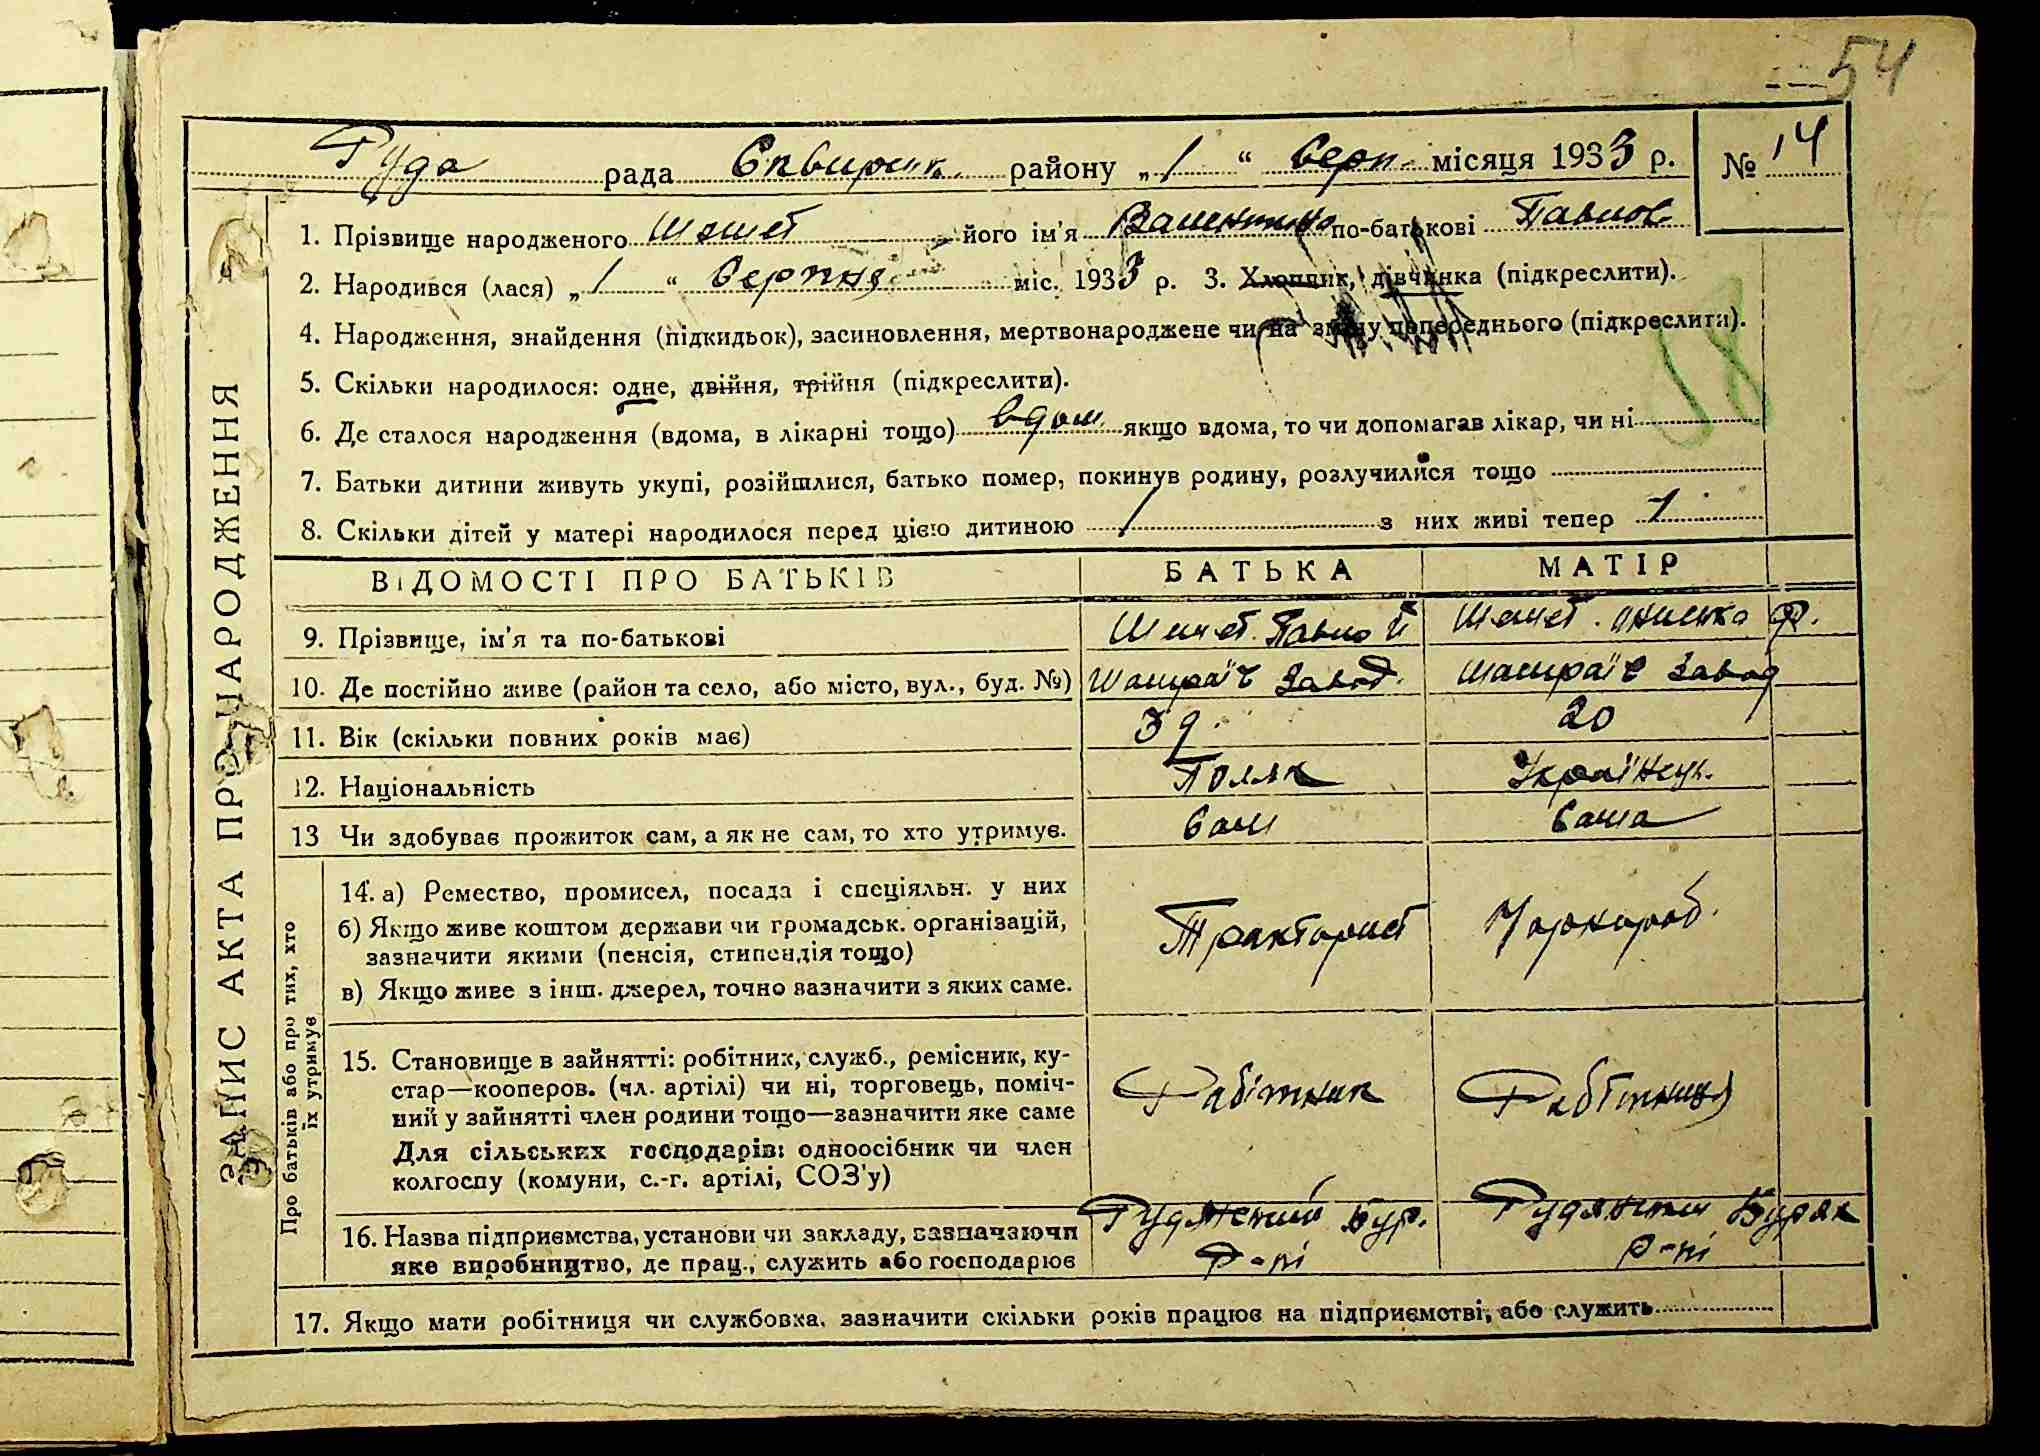 54
Руда рада Сквирськ. району „1“ серп. місяця 1933 р. № 14
ЗАПИС АКТА ПРО НАРОДЖЕННЯ
1. Прізвище народженого його ім'я Валентина по-батькові Павлов.
2. Народився (лася) „1“ серпня міс. 1933 р. 3. Хлопчик, дівчинка (підкреслити).
4. Народження, знайдення (підкидьок), засиновлення, мертвонароджене чи на зміну попереднього (підкреслити).
58
5. Скільки народилося: одне, двійня, трійня (підкреслити).
6. Де сталося народження (вдома, в лікарні тощо) вдом. якщо вдома, то чи допомагав лікар, чи ні
7. Батьки дитини живуть укупі, розійшлися, батько помер, покинув родину, розлучилися тощо
8. Скільки дітей у матері народилося перед цією дитиною 1 з них живі тепер 1
ВІДОМОСТІ ПРО БАТЬКІВ БАТЬКА МАТІР
9. Прізвище, ім'я та по-батькові Павло Й Ф.
10. Де постійно живе (район та село, або місто, вул., буд. №) Шамраїв Завод. Шамраїв Завод
11. Вік (скільки повних років має) 20
12. Національність Поляк Українець.
13 Чи здобуває прожиток сам, а як не сам, то хто утримує. Сам Сама
Про батьків або про тих, хто їх утримує
14. а) Ремество, промисел, посада і спеціяльн. у них
б) Якщо живе коштом держави чи громадськ. організацій,
зазначити якими (пенсія, стипендія тощо) Тракторист Чорнороб.
в) Якщо живе з інш. джерел, точно зазначити з яких саме.
15. Становище в зайнятті: робітник, служб., ремісник, ку-
стар—кооперов. (чл. артілі) чи ні, торговець, поміч- Рабітник Рабітниця
ний у зайнятті член родини тощо—зазначити яке саме
Для сільських господарів: одноосібник чи член
колгоспу (комуни, с.-г. артілі, СОЗ'у)
16. Назва підприємства, установи чи закладу, зазначаючи Рудянский Бур. Рудянский Буряк
яке виробництво, де прац., служить або господарює Р-пі Р-пі
17. Якщо мати робітниця чи службовка, зазначити скільки років працює на підприємстві, або служить